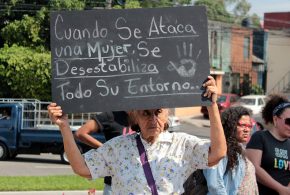 Cuando Se Ataca
una Mujer, Se
Desestabiliza
Todo Su Entorno...